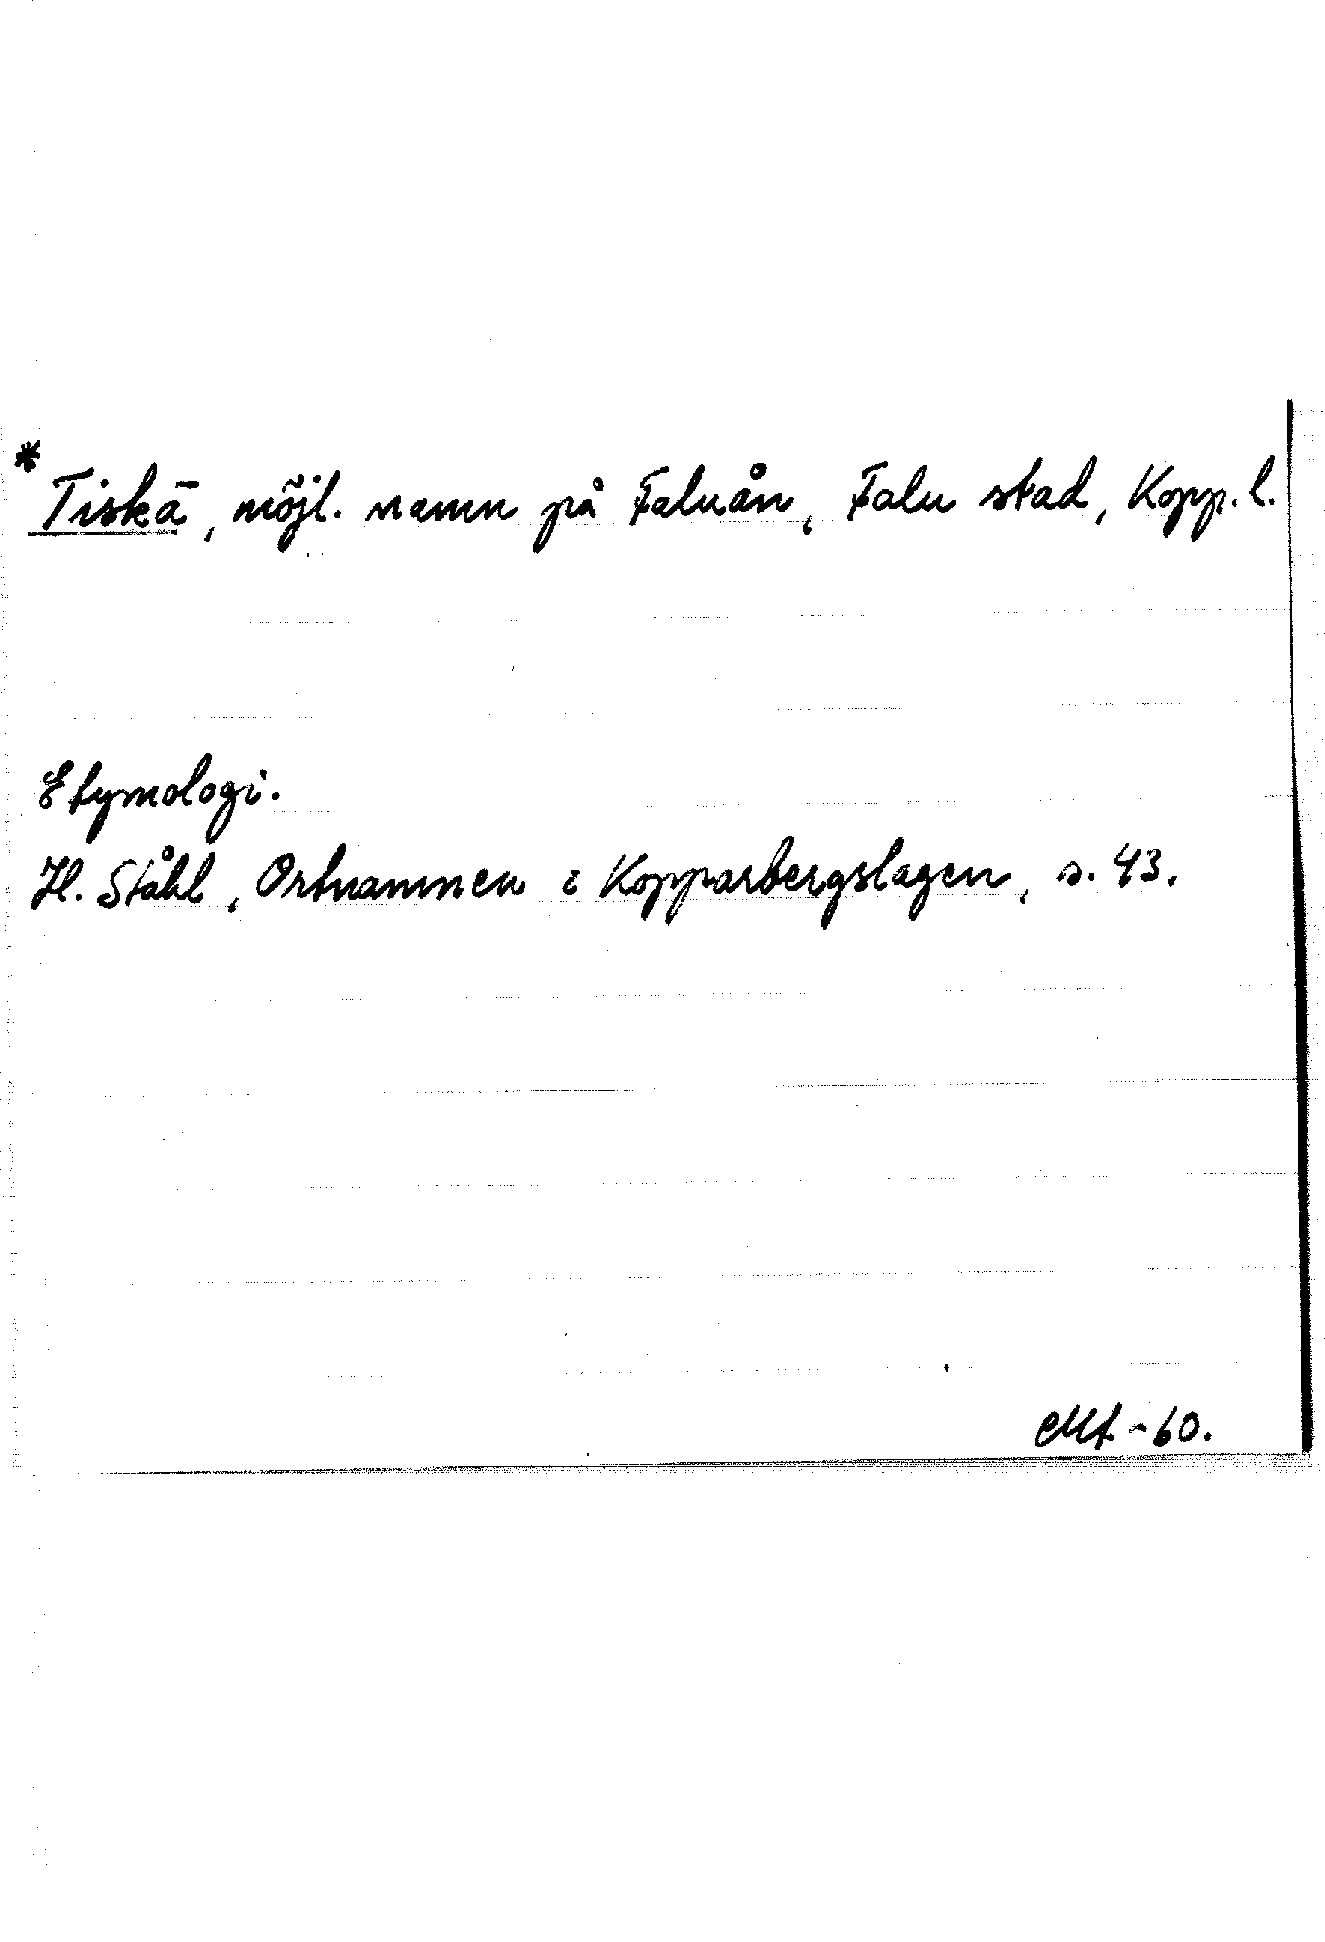 *Tiskā, möjl. namn på Faluån, Falu stad, Kopp. l.
Etymologi.
H. Ståhl, Ortnamnen i Kopparbergslagen, s. 43.
-60.